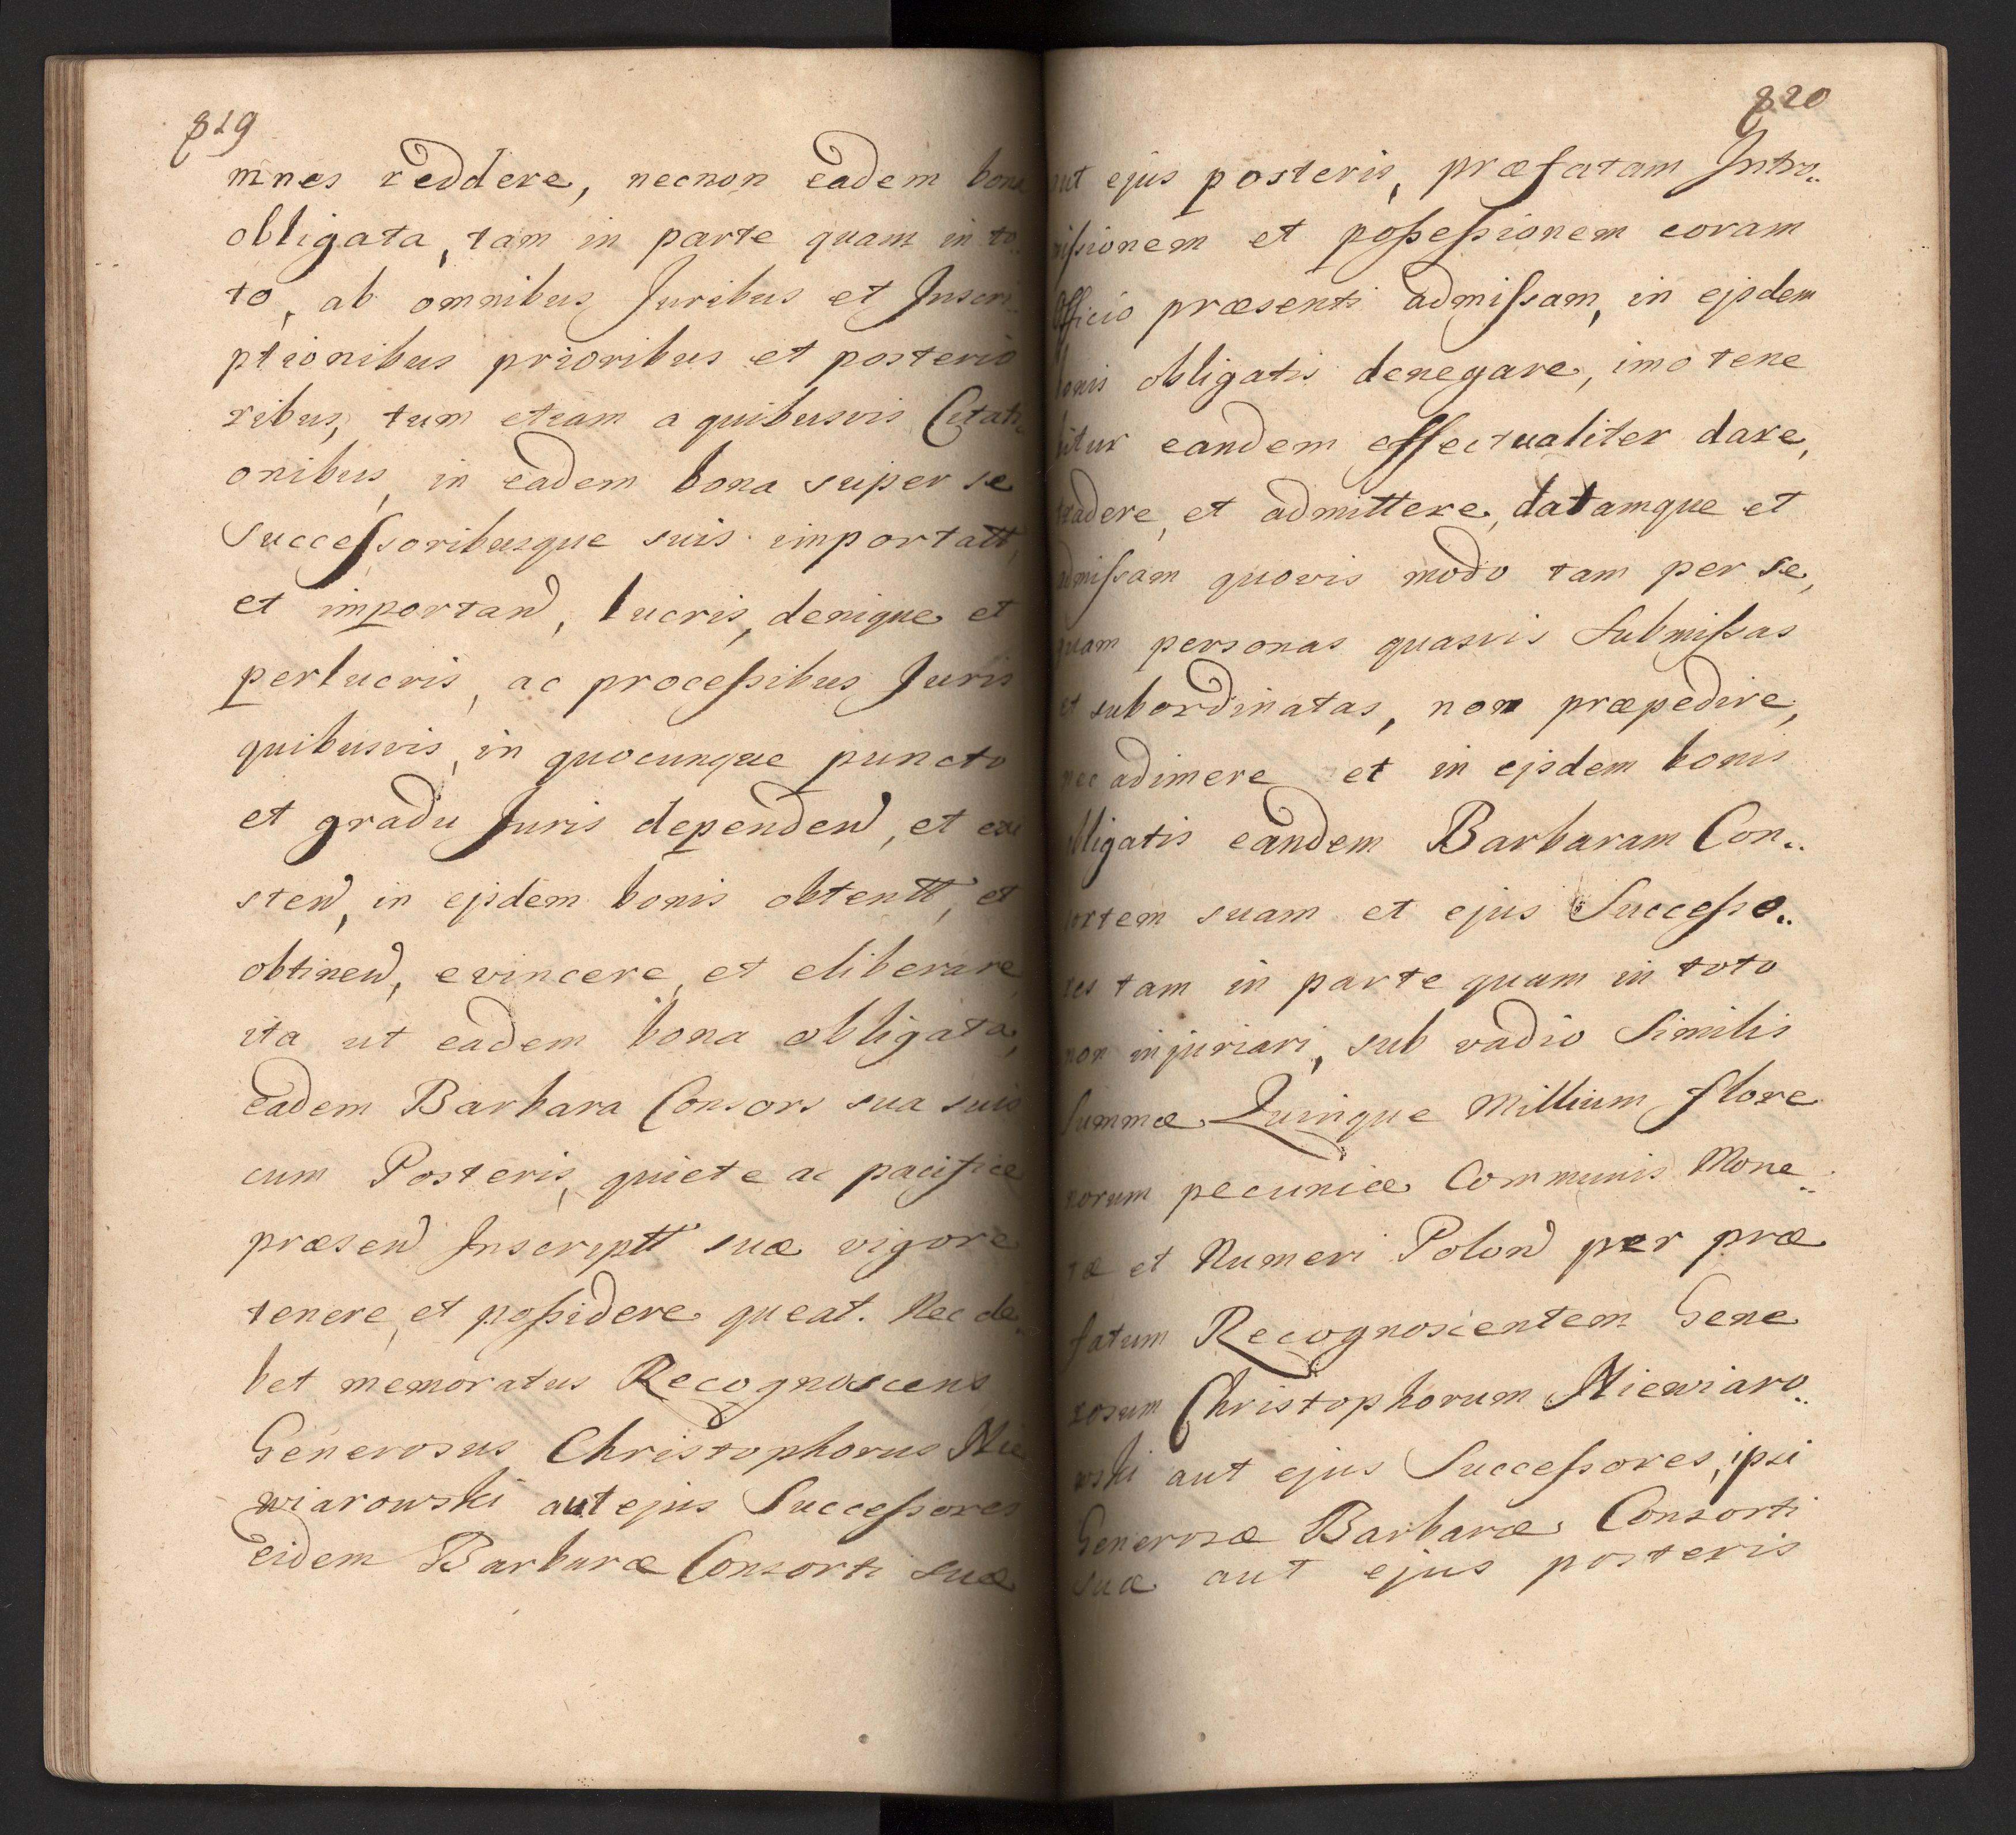 819
mnes reddere, necnon eadem bona
obligata, tam in parte quam in to
to, ab omnibus Juribus et Inscri
ptionibus prioribus et posterio
ribus, tum etiam a quibusvis Citati
onibus, in eadem bona super se
Successoribusque suis importatt,
et importand, lucris, denique et
perlucris, ac processibus Juris
quibusvis, in quocunque puncto
et gradu Juris dependend, et exi
stend, in ejsdem bonis obtentt, et
obtinend, evincere, et eliberare
ita ut eadem bona obligata,
eadem Barbara Consors sua suis
cum Posteris, quiete ac pacifice
præsend Inscriptt suæ vigore
tenere, et possidere queat. Nec de
bet memoratus Recognoscens
Generosus Christophorus Nie
wiarowski aut ejus Successores
eidem Barbaræ Consorti suæ
820
aut ejus posteris, præfatam Intro..
missionem et possessionem coram
Officio præsenti admissam, in ejsdem
bonis obligatis denegare, imo tene
bitur eandem effectualiter dare,
tradere, et admittere, datamque et
admissam quovis modo tam per se,
quam personas quasvis Submissas
et subordinatas, non præpedire,
nec adimere et in ejsdem bonis
obligatis eandem Barbaram Con..
sortem suam et ejus Successo..
res tam in parte quam in toto
non injuriari, sub vadio Similis
Summæ Quinque Millium flore
norum pecuniæ Communis Mone..
tæ et Numeri Polond per præ
fatum Recognoscentem Gene
rosum Christophorum Niewiaro..
wski aut ejus Successores, ipsi
Generosæ Barbaræ Consorti
suæ aut ejus posteris